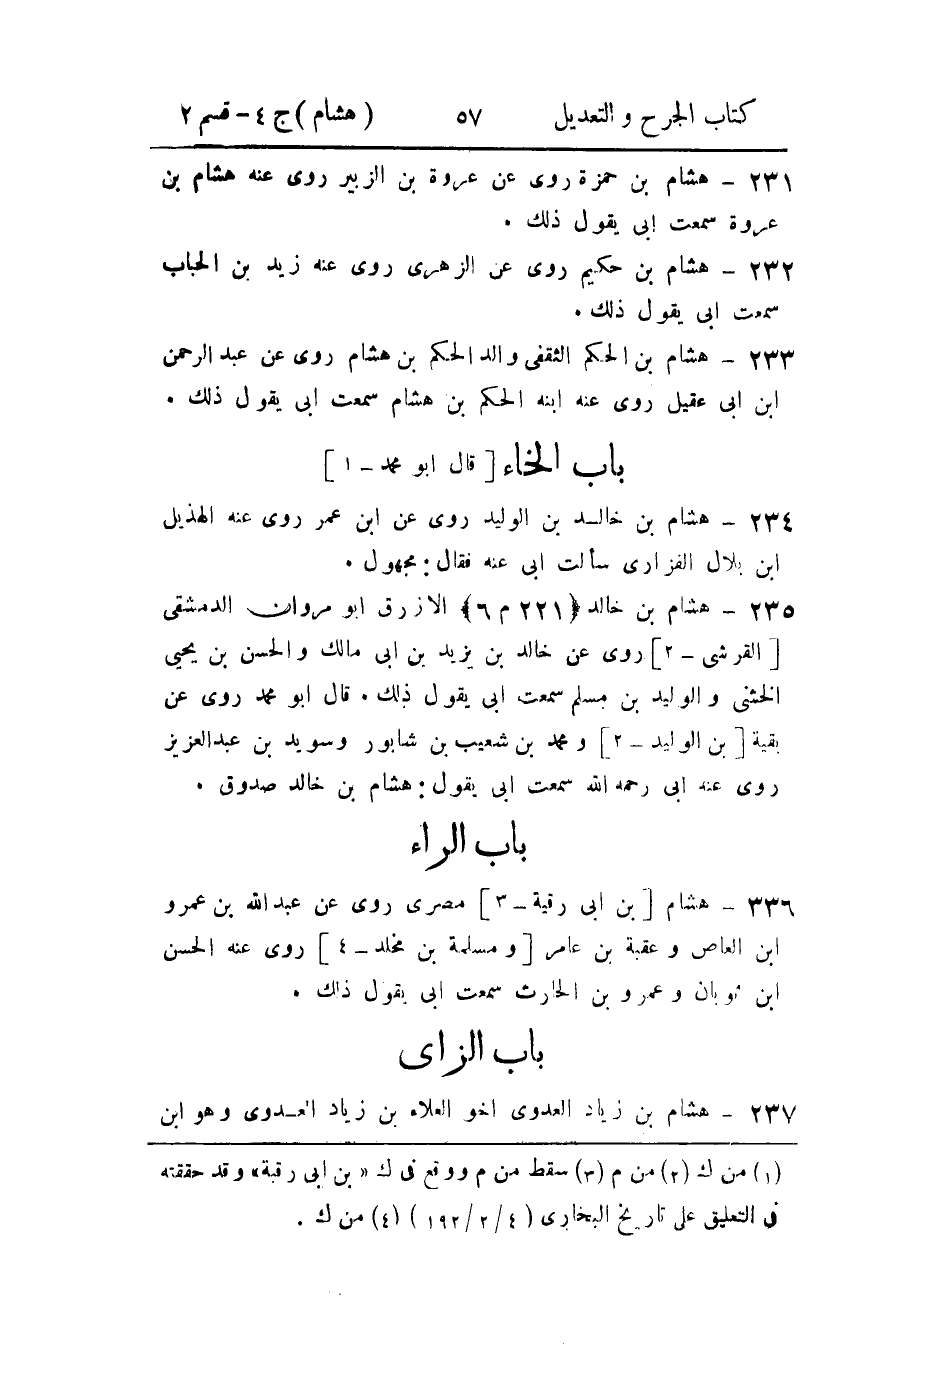 كتاب الجرح و التعديل ٥٧ ( هشام ) ج ٤ - قسم ٢
٢٣١ - هشام بن حمزة روى عن عروة بن الزبير روى عنه هشام بن
عروة سمعت ابى يقول ذلك .
٢٣٢ - هشام بن حكيم روى عن الزهرى روى عنه زيد بن الحباب
سمعت ابى يقول ذلك .
٢٣٣ - هشام بن الحكم الثقفى والد الحكم بن هشام روى عن عبد الرحمن
ابن ابى عقيل روى عنه ابنه الحكم بن هشام سمعت ابى يقول ذلك .
باب الخاء [ قال ابو محمد - ١ ]
٢٣٤ - هشام بن خالد بن الوليد روى عن ابن عمر روى عنه الهذيل
ابن بلال الفزارى سألت ابى عنه فقال : مجهول .
٢٣٥ - هشام بن خالد ﴿ ٢٢١ م ٦ ﴾ الازرق ابو مروان الدمشقى
[ القرشى - ٢ ] روى عن خالد بن يزيد بن ابى مالك والحسن بن يحيى
الخشنى و الوليد بن مسلم سمعت ابى يقول ذلك . قال ابو محمد روى عن
بقية [ بن الوليد - ٢ ] و محمد بن شعيب بن شابور وسويد بن عبدالعزيز
روى عنه ابى رحمه الله سمعت ابى يقول : هشام بن خالد صدوق .
باب الراء
٣٣٦ - هشام [ بن ابى رقية - ٣ ] مصرى روى عن عبدالله بن عمرو
ابن العاص و عقبة بن عامر [ و مسلمة بن مخلد - ٤ ] روى عنه الحسن
ابن ثوبان و عمرو بن الحارث سمعت ابى يقول ذلك .
باب الزاى
٢٣٧ - هشام بن زياد العدوى اخو العلاء بن زياد العدوى وهو ابن
(١) من ك (٢) من م (٣) سقط من م ووقع فى ك « بن ابى رقبة » وقد حققته
فى التعليق على تاريخ البخارى ( ٤ / ٢ / ١٩٢ ) (٤) من ك .